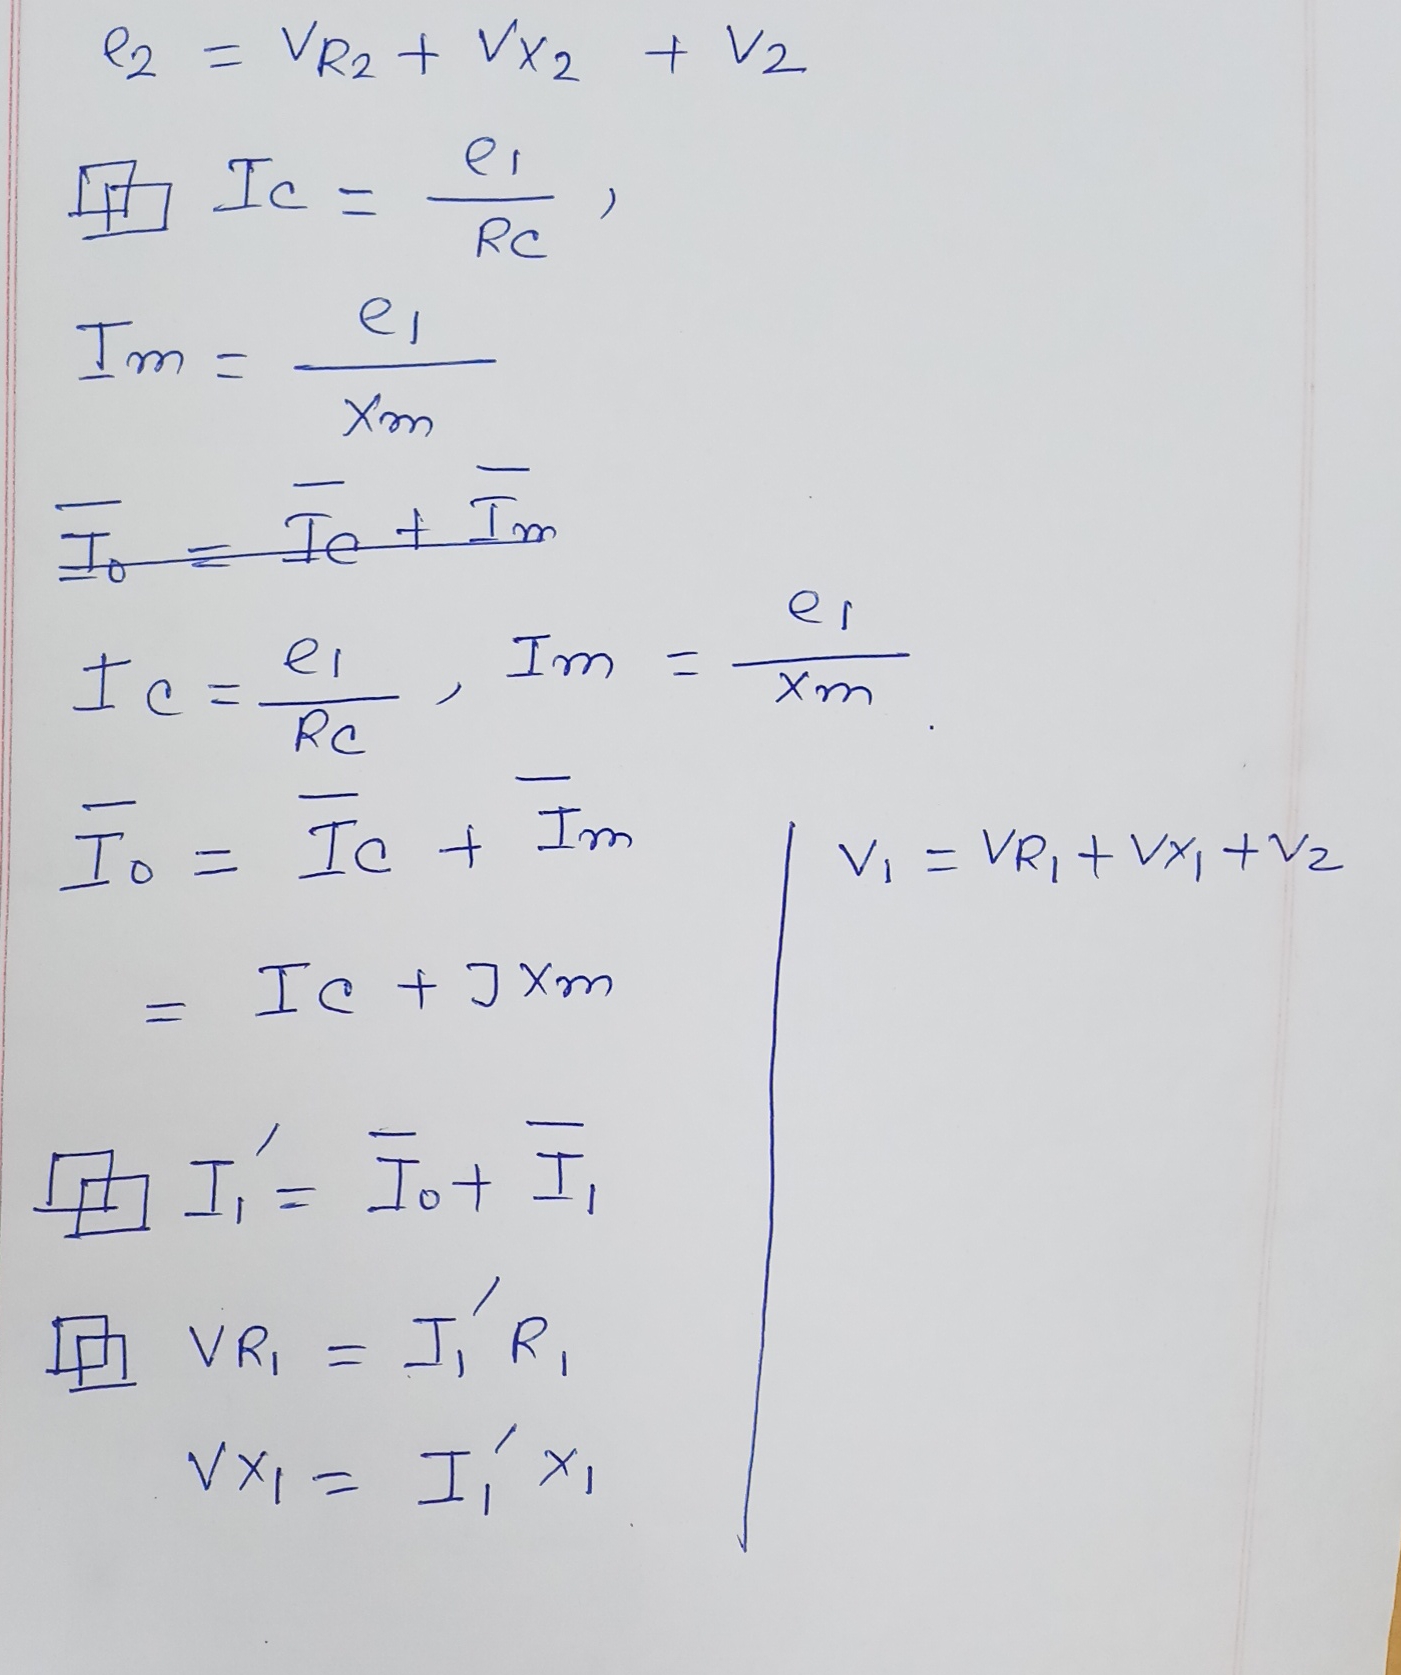 e2 = VR2 + VX2 + V2
Ic = e1 / Rc ,
Im = e1 / Xm
I̅o = I̅c + I̅m
Ic = e1 / Rc , Im = e1 / Xm .
I̅o = I̅c + I̅m
= Ic + J Xm
I1′ = I̅o + I̅1
VR1 = I1′ R1
VX1 = I1′ X1
V1 = VR1 + VX1 + V2